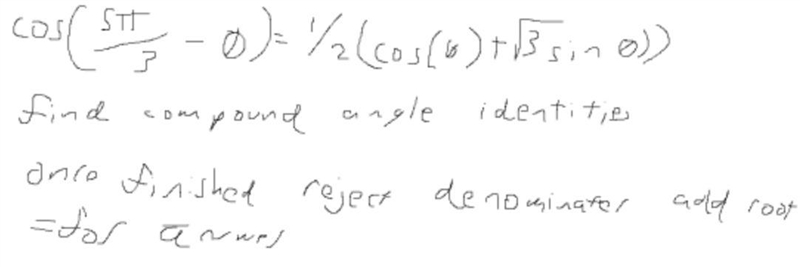 cos(5π/3 - θ) = 1/2(cos(θ) + √3 sin θ))
find compound angle identities
once finished reject denominater add root
= for